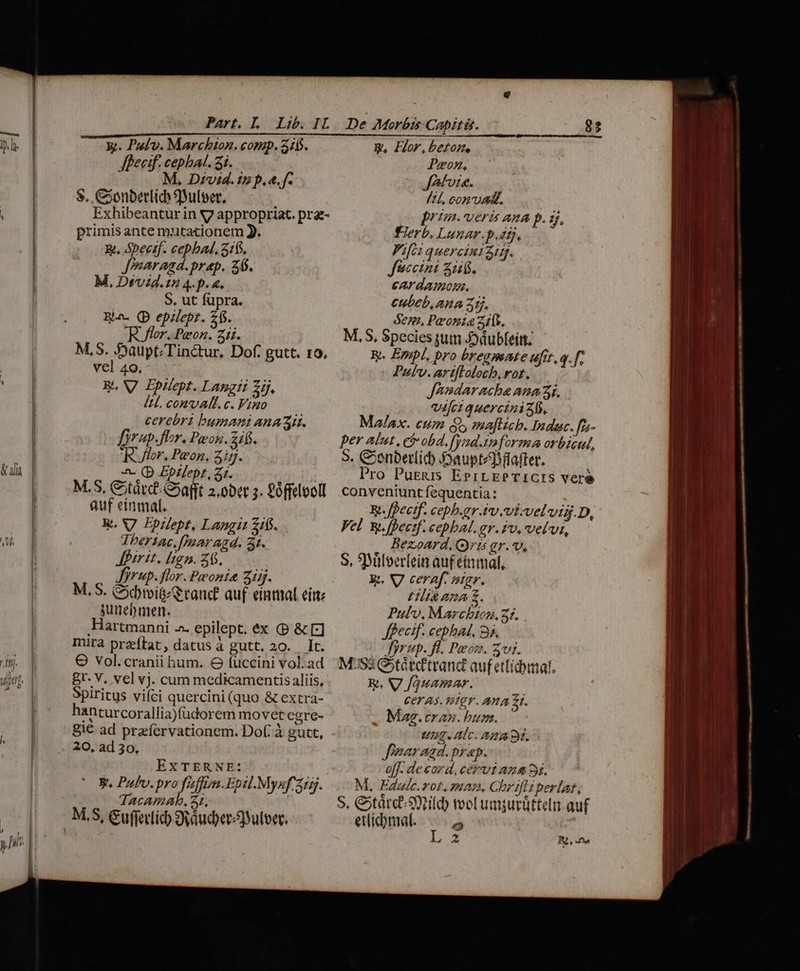 Part. I. Lib. II. De Morbis Capitis. 83
℞. Pulv. Marchion. comp. ʒiß.
specif. cephal. ʒi.
M. Divid. in p. æ. f.
S. Sonderlich Pulver.
Exhibeantur in 🜄 appropriat. præ-
primis ante mutationem ☽.
℞. Specif. cephal. ʒiß.
smaragd. præp. ʒß.
M. Divid. in 4. p. æ.
S. ut supra.
epilept. ʒß.
flor. Pæon. ʒii.
M. S. Haupt-Tinctur, Dos. gutt. 10,
vel 40.
℞. 🜄 Epilept. Langii ℥ij.
lil. convall. c. Vino
cerebri humani ana ℥ii.
syrup. flor. Pæon. ℥iß.
flor. Pæon. ʒiij.
Epilept. ʒi.
M. S. Stärck-Safft 2. oder 3. Löffelvoll
auf einmal.
℞. 🜄 Epilept. Langii ℥iß.
Theriac. smaragd. ʒi.
spirit. lign. ʒß.
syrup. flor. Pæoniæ ʒiij.
M. S. Schwitz-Tranck auf einmal ein-
zunehmen.
Hartmanni epilept. ex
mira præstat, datus à gutt. 20. It.
Vol. cranii hum. succini vol. ad
gr. v. vel vj. cum medicamentis aliis,
Spiritus visci quercini (quo & extra-
hantur corallia) sudorem movet egre-
giè ad præservationem. Dos. à gutt.
20. ad 30.
EXTERNE:
℞. Pulv. pro fuffim. Epil. Mynf. ʒiij.
Tacamah. ʒi.
M. S. Eusserlich Räucher-Pulver.
℞. Flor. beton.
Pæon.
salviæ.
lil. convall.
prim. veris ana p. ij.
Herb. Lunar. p. iij.
Visci quercini ʒiij.
succini ʒiiß.
cardamom.
cubeb. ana ʒij.
Sem. Pæoniæ ʒiß.
M. S. Species zum Häublein.
℞. Empl. pro bregmate usit. q. s.
Pulv. aristoloch. rot.
sandarachæ ana ʒi.
visci quercini ʒß.
Malax. cum mastich. Induc. su-
per alut. & obd. synd. in forma orbicul.
S. Sonderlich Haupt-Pflaster.
Pro PUERIS EPILEPTICIS verè
conveniunt sequentia:
℞. specif. ceph. gr. iv. vi. vel viij. D.
Vel ℞. specif. cephal. gr. iv. vel vi.
Bezoard. gr. v.
S. Pülverlein auf einmal.
℞. 🜄 ceras. nigr.
tiliæ ana
Pulv. Marchion. ʒi.
specif. cephal. ℈i.
syrup. fl. Pæon. ʒvi.
M. S. Stärcktranck auf etlichmal.
℞. 🜄 squamar.
ceras. nigr. ana ℥i.
Mag. cran. hum.
ung. alc. ana ℈i.
smaragd. præp.
off. de cord. cervi ana ℈i.
M. Edulc. rot. man. Christi perlat.
S. Stärck-Milch wol umzurütteln auf
etlichmal.
L 2 ℞.